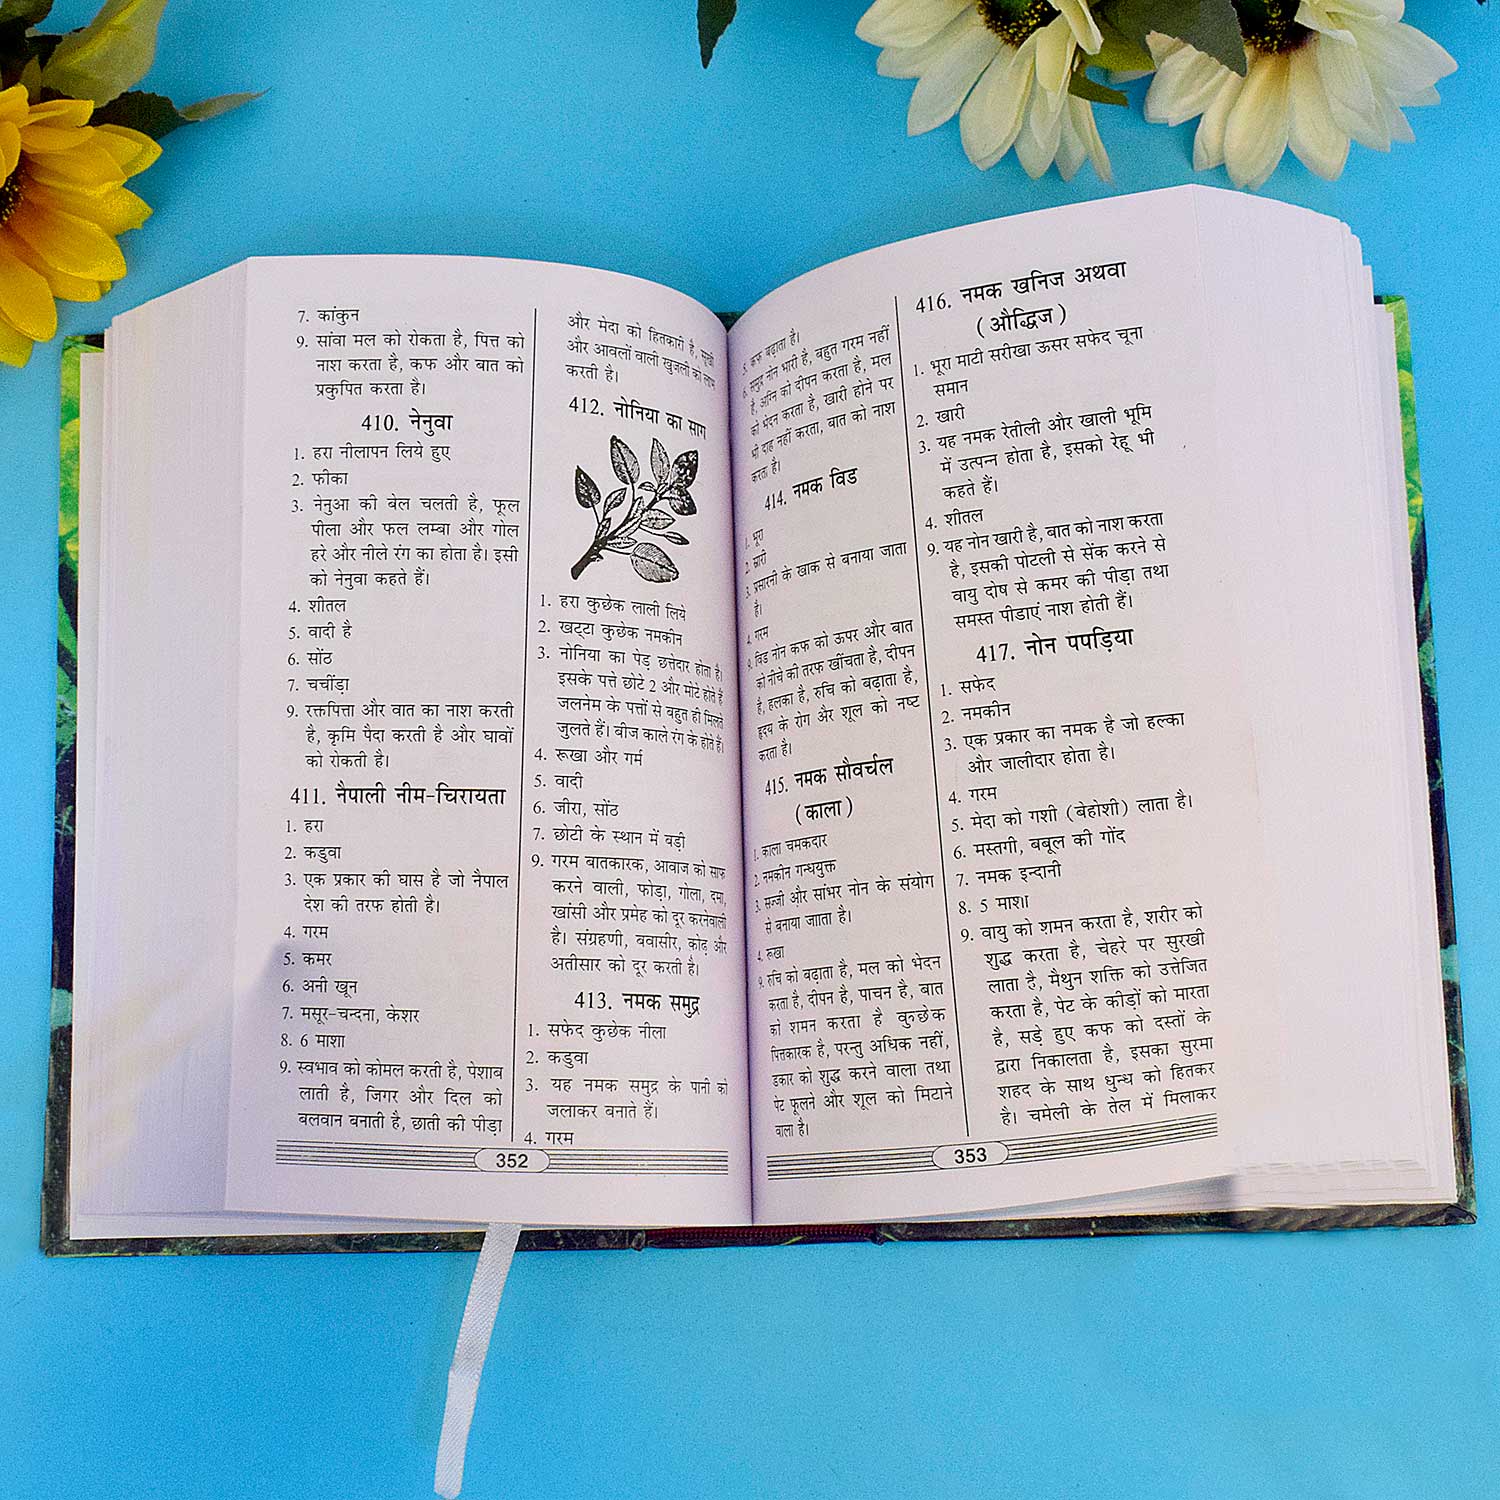 7. कांकुन
9. सांवा मल को रोकता है, पित्त को
नाश करता है, कफ और बात को
प्रकुपित करता है।
410. नेनुवा
1. हरा नीलापन लिये हुए
2. फीका
3. नेनुआ की बेल चलती है, फूल
पीला और फल लम्बा और गोल
हरे और नीले रंग का होता है। इसी
को नेनुवा कहते हैं।
4. शीतल
5. वादी है
6. सोंठ
7. चचींड़ा
9. रक्तपित्ता और वात का नाश करती
है, कृमि पैदा करती है और घावों
को रोकती है।
411. नैपाली नीम-चिरायता
1. हरा
2. कडुवा
3. एक प्रकार की घास है जो नैपाल
देश की तरफ होती है।
4. गरम
5. कमर
6. अनी खून
7. मसूर-चन्दना, केशर
8. 6 माशा
9. स्वभाव को कोमल करती है, पेशाब
लाती है, जिगर और दिल को
बलवान बनाती है, छाती की पीड़ा
और मेदा को हितकारी है, सूखी
और आवलों वाली खुजली को लाभ
करती है।
412. नोनिया का साग
1. हरा कुछेक लाली लिये
2. खट्टा कुछेक नमकीन
3. नोनिया का पेड़ छत्तेदार होता है।
इसके पत्ते छोटे 2 और मोटे होते हैं
जलनेम के पत्तों से बहुत ही मिलते
जुलते हैं। बीज काले रंग के होते हैं।
4. रूखा और गर्म
5. वादी
6. जीरा, सोंठ
7. छोटी के स्थान में बड़ी
9. गरम बातकारक, आवाज को साफ
करने वाली, फोड़ा, गोला, दमा,
खांसी और प्रमेह को दूर करनेवाली
है। संग्रहणी, बवासीर, कोढ़ और
अतीसार को दूर करती है।
413. नमक समुद्र
1. सफेद कुछेक नीला
2. कडुवा
3. यह नमक समुद्र के पानी को
जलाकर बनाते हैं।
4. गरम
352
5. कफ बढ़ाता है।
6. समुद्र नोन भारी है, बहुत गरम नहीं
है, अग्नि को दीपन करता है, मल
को भेदन करता है, खारी होने पर
भी दाह नहीं करता, बात को नाश
करता है।
414. नमक विड
1. भूरा
2. खारी
3. प्रसारनी के खाक से बनाया जाता
है।
4. गरम
9. विड नोन कफ को ऊपर और बात
को नीचे की तरफ खींचता है, दीपन
है, हलका है, रुचि को बढ़ाता है,
हृदय के रोग और शूल को नष्ट
करता है।
415. नमक सौवर्चल
(काला)
1. काला चमकदार
2. नमकीन गन्धयुक्त
3. सज्जी और सांभर नोन के संयोग
से बनाया जााता है।
4. रूखा
9. रुचि को बढ़ाता है, मल को भेदन
करता है, दीपन है, पाचन है, बात
को शमन करता है कुछेक
पित्तकारक है, परन्तु अधिक नहीं,
डकार को शुद्ध करने वाला तथा
पेट फूलने और शूल को मिटाने
वाला है।
416. नमक खनिज अथवा
(औद्भिज)
1. भूरा माटी सरीखा ऊसर सफेद चूना
समान
2. खारी
3. यह नमक रेतीली और खाली भूमि
में उत्पन्न होता है, इसको रेहू भी
कहते हैं।
4. शीतल
9. यह नोन खारी है, बात को नाश करता
है, इसकी पोटली से सेंक करने से
वायु दोष से कमर की पीड़ा तथा
समस्त पीडाएं नाश होती हैं।
417. नोन पपड़िया
1. सफेद
2. नमकीन
3. एक प्रकार का नमक है जो हल्का
और जालीदार होता है।
4. गरम
5. मेदा को गशी (बेहोशी) लाता है।
6. मस्तगी, बबूल की गोंद
7. नमक इन्दानी
8. 5 माशा
9. वायु को शमन करता है, शरीर को
शुद्ध करता है, चेहरे पर सुरखी
लाता है, मैथुन शक्ति को उत्तेजित
करता है, पेट के कीड़ों को मारता
है, सड़े हुए कफ को दस्तों के
द्वारा निकालता है, इसका सुरमा
शहद के साथ धुन्ध को हितकर
है। चमेली के तेल में मिलाकर
353